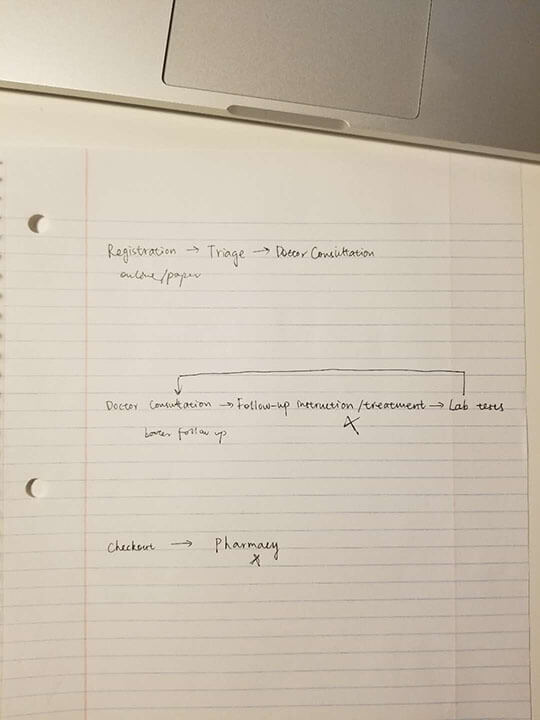 Registration → Triage → Doctor Consultation
online/paper
Doctor Consultation → Follow-up instruction/treatment → Lab tests
follow up
Checkout → Pharmacy